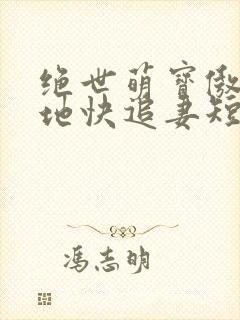 绝世萌宝傲
地快追妻短
冯志明